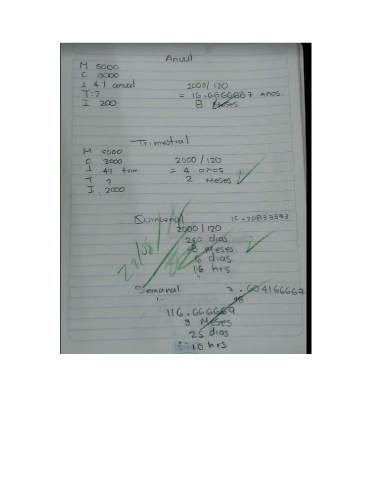 Anual
M 5000
C 3000
I 4% anual 2000/120
T:? = 16.6666667 años.
I 200 8 Meses
Trimestral
M 5000
C 3000 2000/120
I 4% trim = 4 años
T ? 2 Meses.
I. 2000
Quincenal 15.20833333
2000/120
250 dias
8 Meses.
6 dias
16 hrs
29/08/
Semanal
116.666669
9 Meses
25 dias
10 hrs